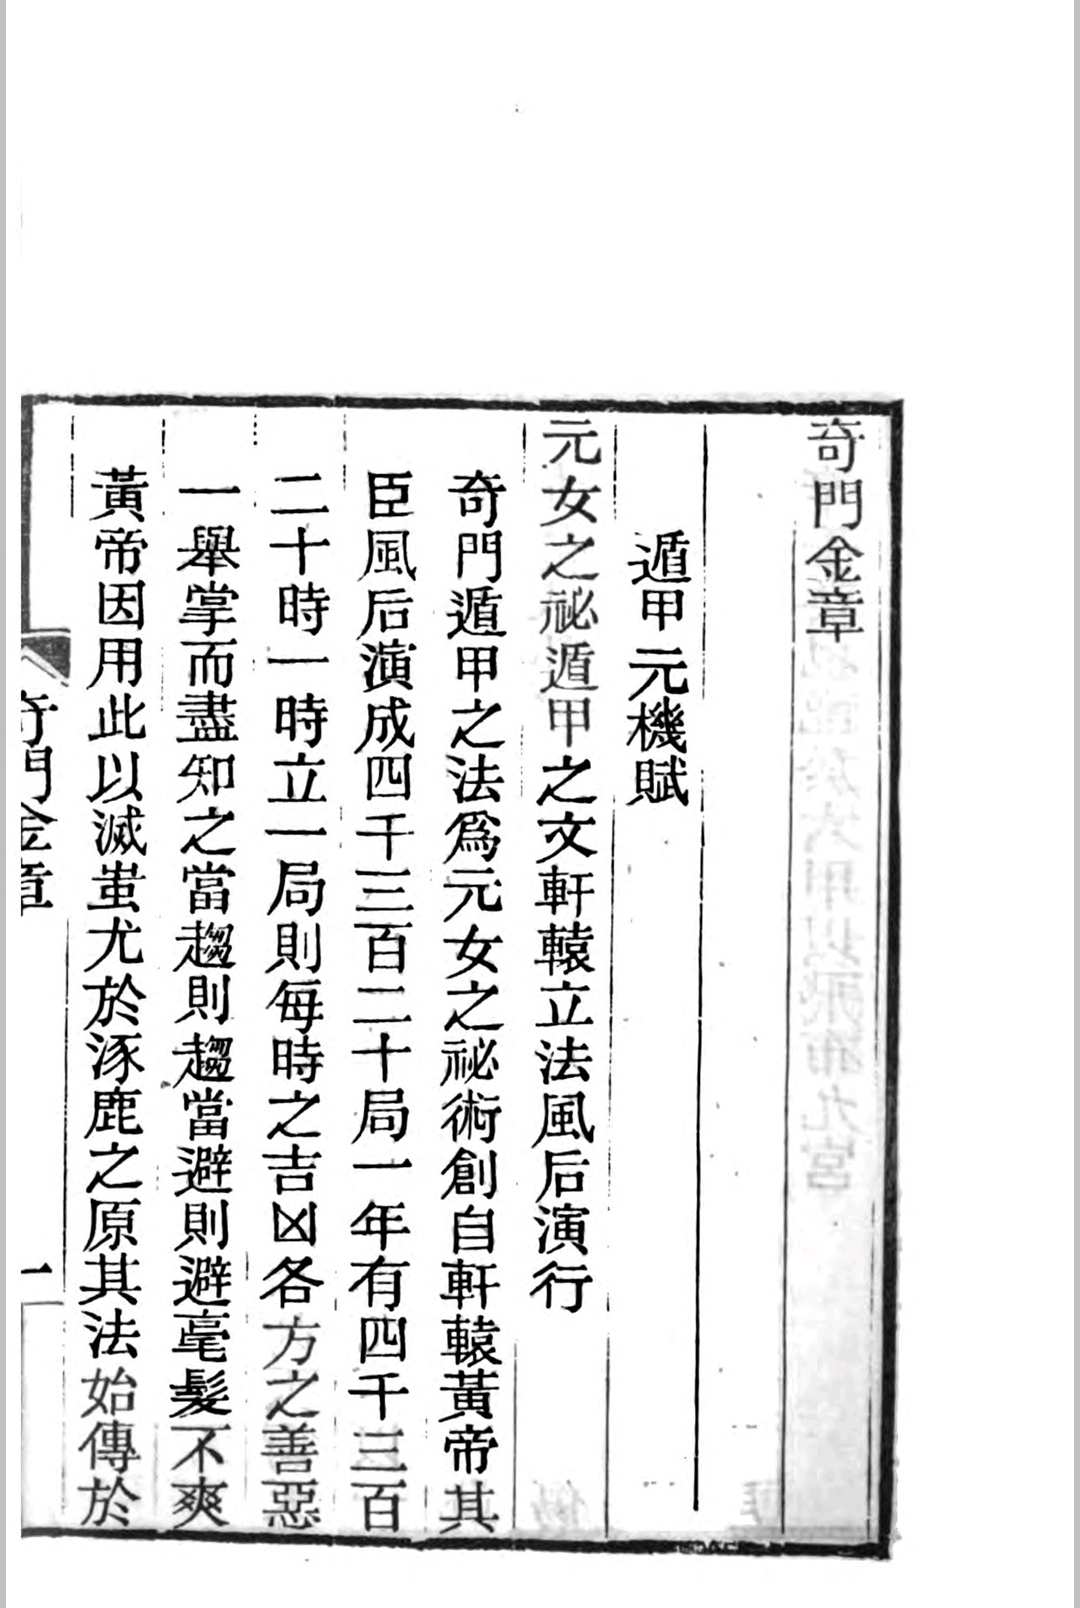 奇門金章
遁甲元機賦
元女之祕遁甲之文軒轅立法風后演行
奇門遁甲之法爲元女之祕術創自軒轅黃帝其
臣風后演成四千三百二十局一年有四千三百
二十時一時立一局則每時之吉凶各方之善惡
一舉掌而盡知之當趨則趨當避則避毫髮不爽
黃帝因用此以滅蚩尤於涿鹿之原其法始傳於
奇門金章
一